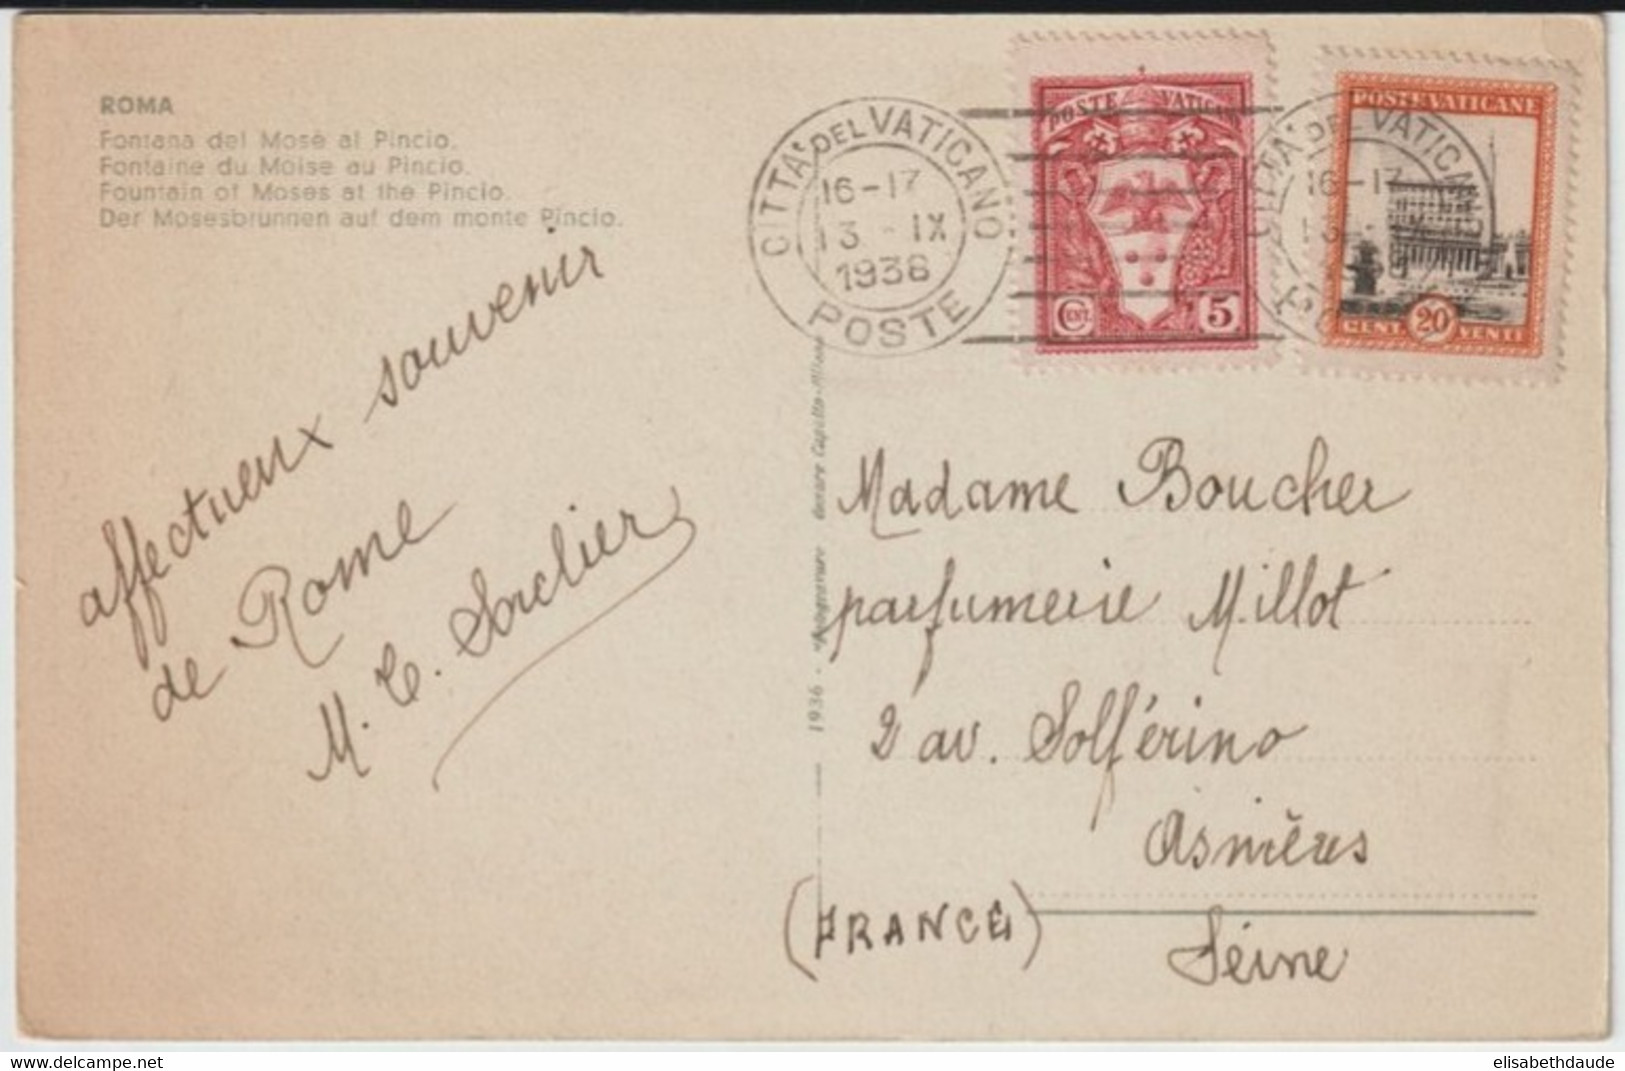 ROMA
Fontana del Mosè al Pincio.
Fontaine du Moise au Pincio.
Fountain of Moses at the Pincio.
Der Mosesbrunnen auf dem monte Pincio.
affectueux souvenir
de Rome
M. C. Sorclier
CITTA' DEL VATICANO
16-17
13 - IX
1938
POSTE
POSTE VATICANE
CENT. 5
CITTA' DEL VATICANO
16-17
POSTE VATICANE
CENT. 20 VENTI
1936 -
Madame Boucher
parfumerie Millot
2 av. Solférino
Asnières
(FRANCE)
Seine
delcampe.net
elisabethdaude